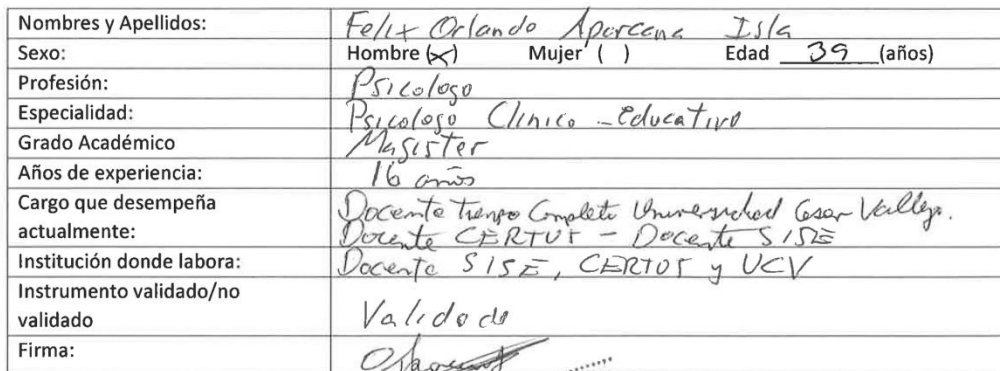 Nombres y Apellidos: Felix Orlando Aparcana Isla
Sexo: Hombre (x) Mujer ( ) Edad 39 (años)
Profesión: Psicologo
Especialidad: Psicologo Clinico - Educativo
Grado Académico Magister
Años de experiencia: 16 años
Cargo que desempeña Docente Tiempo Completo Universidad Cesar Vallejo.
actualmente: Docente CERTUS - Docente SISE
Institución donde labora: Docente SISE, CERTUS y UCV
Instrumento validado/no
validado Validado
Firma: